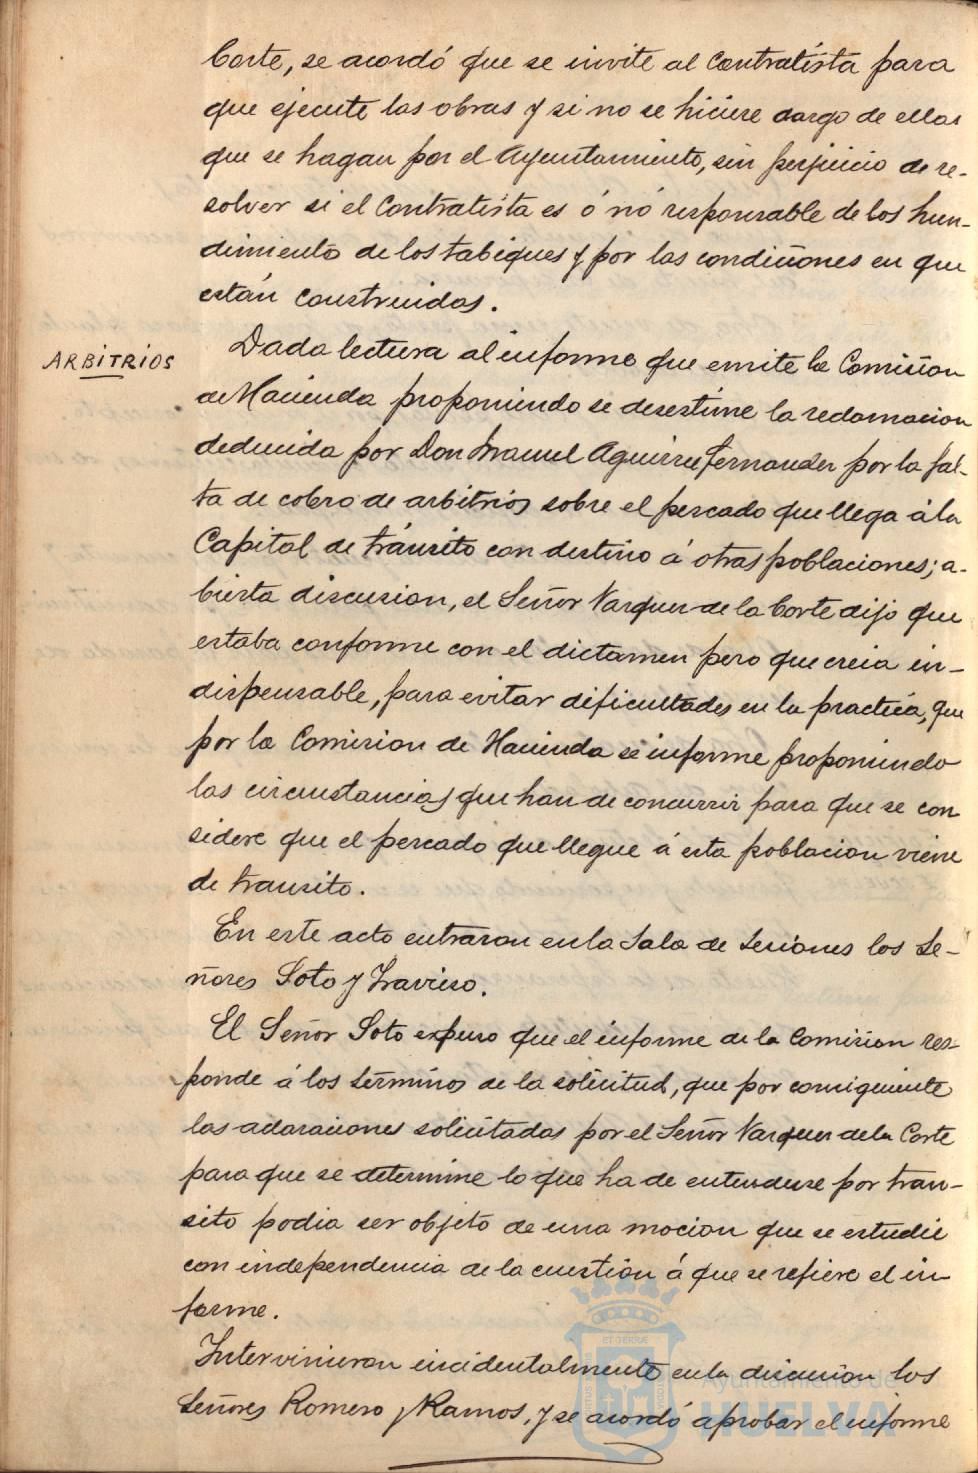 Corte, se acordó que se invite al Contratista para
que ejecute las obras y si no se hiciere cargo de ellas
que se hagan por el Ayuntamiento, sin perjuicio de re-
solver si el Contratista es ó nó responsable de los hun-
dimiento de los tabiques y por las condiciones en que
están construidos.
ARBITRIOS
Dada lectura al informe que emite la Comision
de Hacienda proponiendo se desestime la reclamacion
deducida por Don Manuel Aguirre Fernandez por la fal-
ta de cobro de arbitrios sobre el pescado que llega á la
Capital de tránsito con destino á otras poblaciones; a-
bierta discusion, el Señor Vazquez de la Corte dijo que
estaba conforme con el dictamen pero que creia in-
dispensable, para evitar dificultades en la practica, que
por la Comision de Hacienda se informe proponiendo
las circunstancias que han de concurrir para que se con
sidere que el pescado que llegue á esta poblacion viene
de transito.
En este acto entraron en la Sala de Sesiones los Se-
ñores Soto y Travieso.
El Señor Soto expuso que el informe de la Comision res-
ponde á los términos de la solicitud, que por consiguiente
las aclaraciones solicitadas por el Señor Vazquez de la Corte
para que se determine lo que ha de entenderse por tran-
sito podia ser objeto de una mocion que se estudie
con independencia de la cuestion á que se refiere el in-
forme.
Intervinieron incidentalmente en la discusion los
Señores Romero y Ramos, y se acordó aprobar el informe
Ayuntamiento de
HUELVA